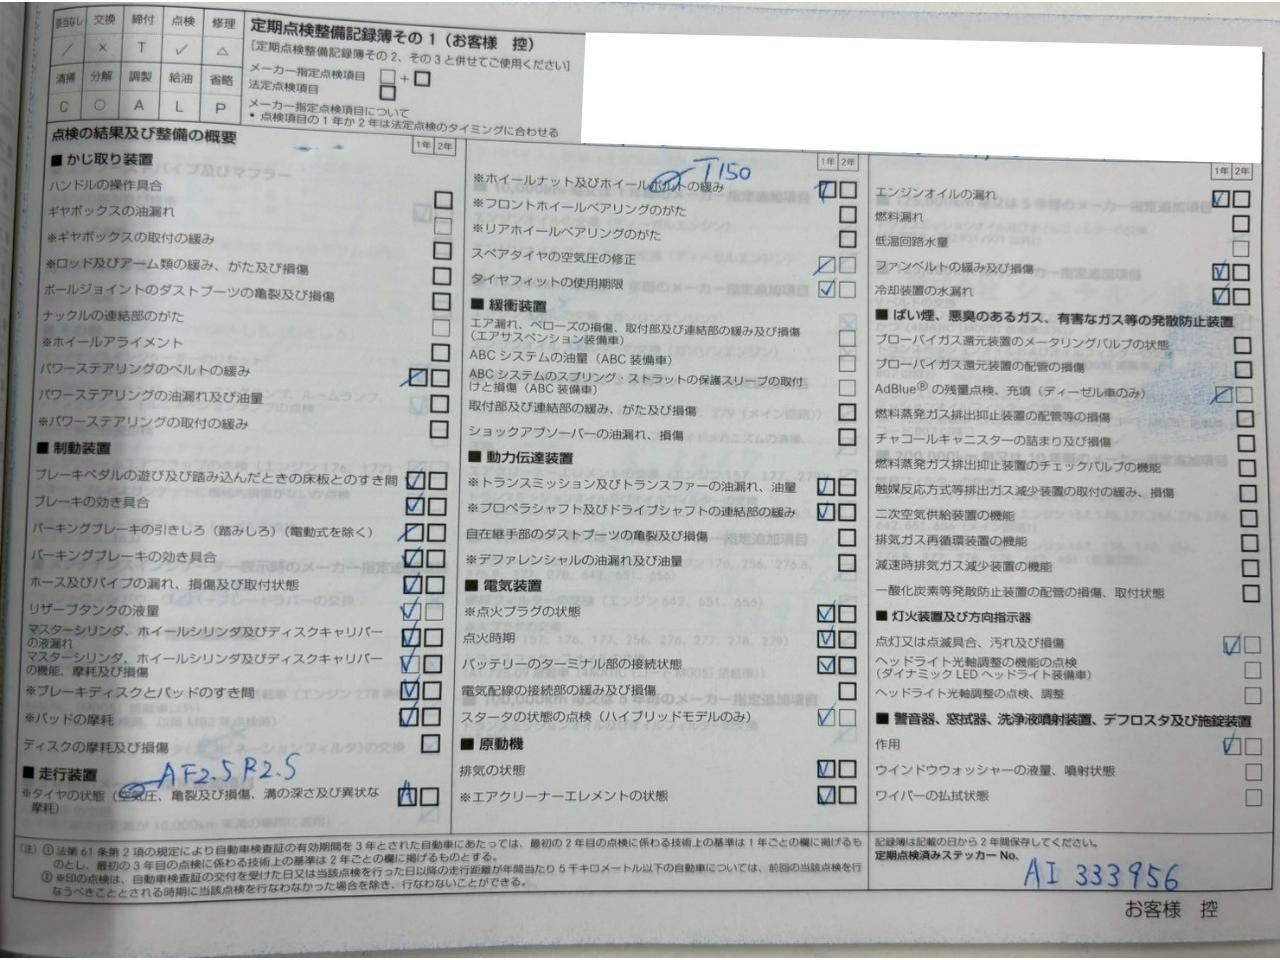 該当なし 交換 締付 点検 修理
／ × T ✓ △
清掃 分解 調製 給油 省略
C ○ A L P
定期点検整備記録簿その1（お客様 控）
［定期点検整備記録簿その2、その3と併せてご使用ください］
メーカー指定点検項目 □＋□
法定点検項目 □
メーカー指定点検項目について
• 点検項目の1年か2年は法定点検のタイミングに合わせる
点検の結果及び整備の概要
1年 2年
■ かじ取り装置
ハンドルの操作具合
ギヤボックスの油漏れ
※ギヤボックスの取付の緩み
※ロッド及びアーム類の緩み、がた及び損傷
ボールジョイントのダストブーツの亀裂及び損傷
ナックルの連結部のがた
※ホイールアライメント
パワーステアリングのベルトの緩み
パワーステアリングの油漏れ及び油量
※パワーステアリングの取付の緩み
■ 制動装置
ブレーキペダルの遊び及び踏み込んだときの床板とのすき間
ブレーキの効き具合
パーキングブレーキの引きしろ（踏みしろ）（電動式を除く）
パーキングブレーキの効き具合
ホース及びパイプの漏れ、損傷及び取付状態
リザーブタンクの液量
マスターシリンダ、ホイールシリンダ及びディスクキャリパー
の液漏れ
マスターシリンダ、ホイールシリンダ及びディスクキャリパー
の機能、摩耗及び損傷
※ブレーキディスクとパッドのすき間
※パッドの摩耗
ディスクの摩耗及び損傷
■ 走行装置
AF2.5 R2.5
※タイヤの状態（空気圧、亀裂及び損傷、溝の深さ及び異状な
摩耗）
A
1年 2年
T150
※ホイールナット及びホイールボルトの緩み
T
※フロントホイールベアリングのがた
※リアホイールベアリングのがた
スペアタイヤの空気圧の修正
タイヤフィットの使用期限
■ 緩衝装置
エア漏れ、ベローズの損傷、取付部及び連結部の緩み及び損傷
（エアサスペンション装備車）
ABC システムの油量（ABC 装備車）
ABC システムのスプリング・ストラットの保護スリーブの取付
けと損傷（ABC 装備車）
取付部及び連結部の緩み、がた及び損傷
ショックアブソーバーの油漏れ、損傷
■ 動力伝達装置
※トランスミッション及びトランスファーの油漏れ、油量
※プロペラシャフト及びドライブシャフトの連結部の緩み
自在継手部のダストブーツの亀裂及び損傷
※デファレンシャルの油漏れ及び油量
■ 電気装置
※点火プラグの状態
点火時期
バッテリーのターミナル部の接続状態
電気配線の接続部の緩み及び損傷
スタータの状態の点検（ハイブリッドモデルのみ）
■ 原動機
排気の状態
※エアクリーナーエレメントの状態
1年 2年
エンジンオイルの漏れ
燃料漏れ
低温回路水量
ファンベルトの緩み及び損傷
冷却装置の水漏れ
■ ばい煙、悪臭のあるガス、有害なガス等の発散防止装置
ブローバイガス還元装置のメータリングバルブの状態
ブローバイガス還元装置の配管の損傷
AdBlue®の残量点検、充填（ディーゼル車のみ）
燃料蒸発ガス排出抑止装置の配管等の損傷
チャコールキャニスターの詰まり及び損傷
燃料蒸発ガス排出抑止装置のチェックバルブの機能
触媒反応方式等排出ガス減少装置の取付の緩み、損傷
二次空気供給装置の機能
排気ガス再循環装置の機能
減速時排気ガス減少装置の機能
一酸化炭素等発散防止装置の配管の損傷、取付状態
■ 灯火装置及び方向指示器
点灯又は点滅具合、汚れ及び損傷
ヘッドライト光軸調整の機能の点検
（ダイナミック LED ヘッドライト装備車）
ヘッドライト光軸調整の点検、調整
■ 警音器、窓拭器、洗浄液噴射装置、デフロスタ及び施錠装置
作用
ウインドウウォッシャーの液量、噴射状態
ワイパーの払拭状態
（注）① 法第61条第2項の規定により自動車検査証の有効期間を3年とされた自動車にあたっては、最初の2年目の点検に係わる技術上の基準は1年ごとの欄に掲げるも
のとし、最初の3年目の点検に係わる技術上の基準は2年ごとの欄に掲げるものとする。
② ※印の点検は、自動車検査証の交付を受けた日又は当該点検を行った日以降の走行距離が年間当たり5千キロメートル以下の自動車については、前回の当該点検を行
なうべきこととされる時期に当該点検を行なわなかった場合を除き、行なわないことができる。
記録簿は記載の日から2年間保存してください。
定期点検済みステッカー No.
AI 333956
お客様 控